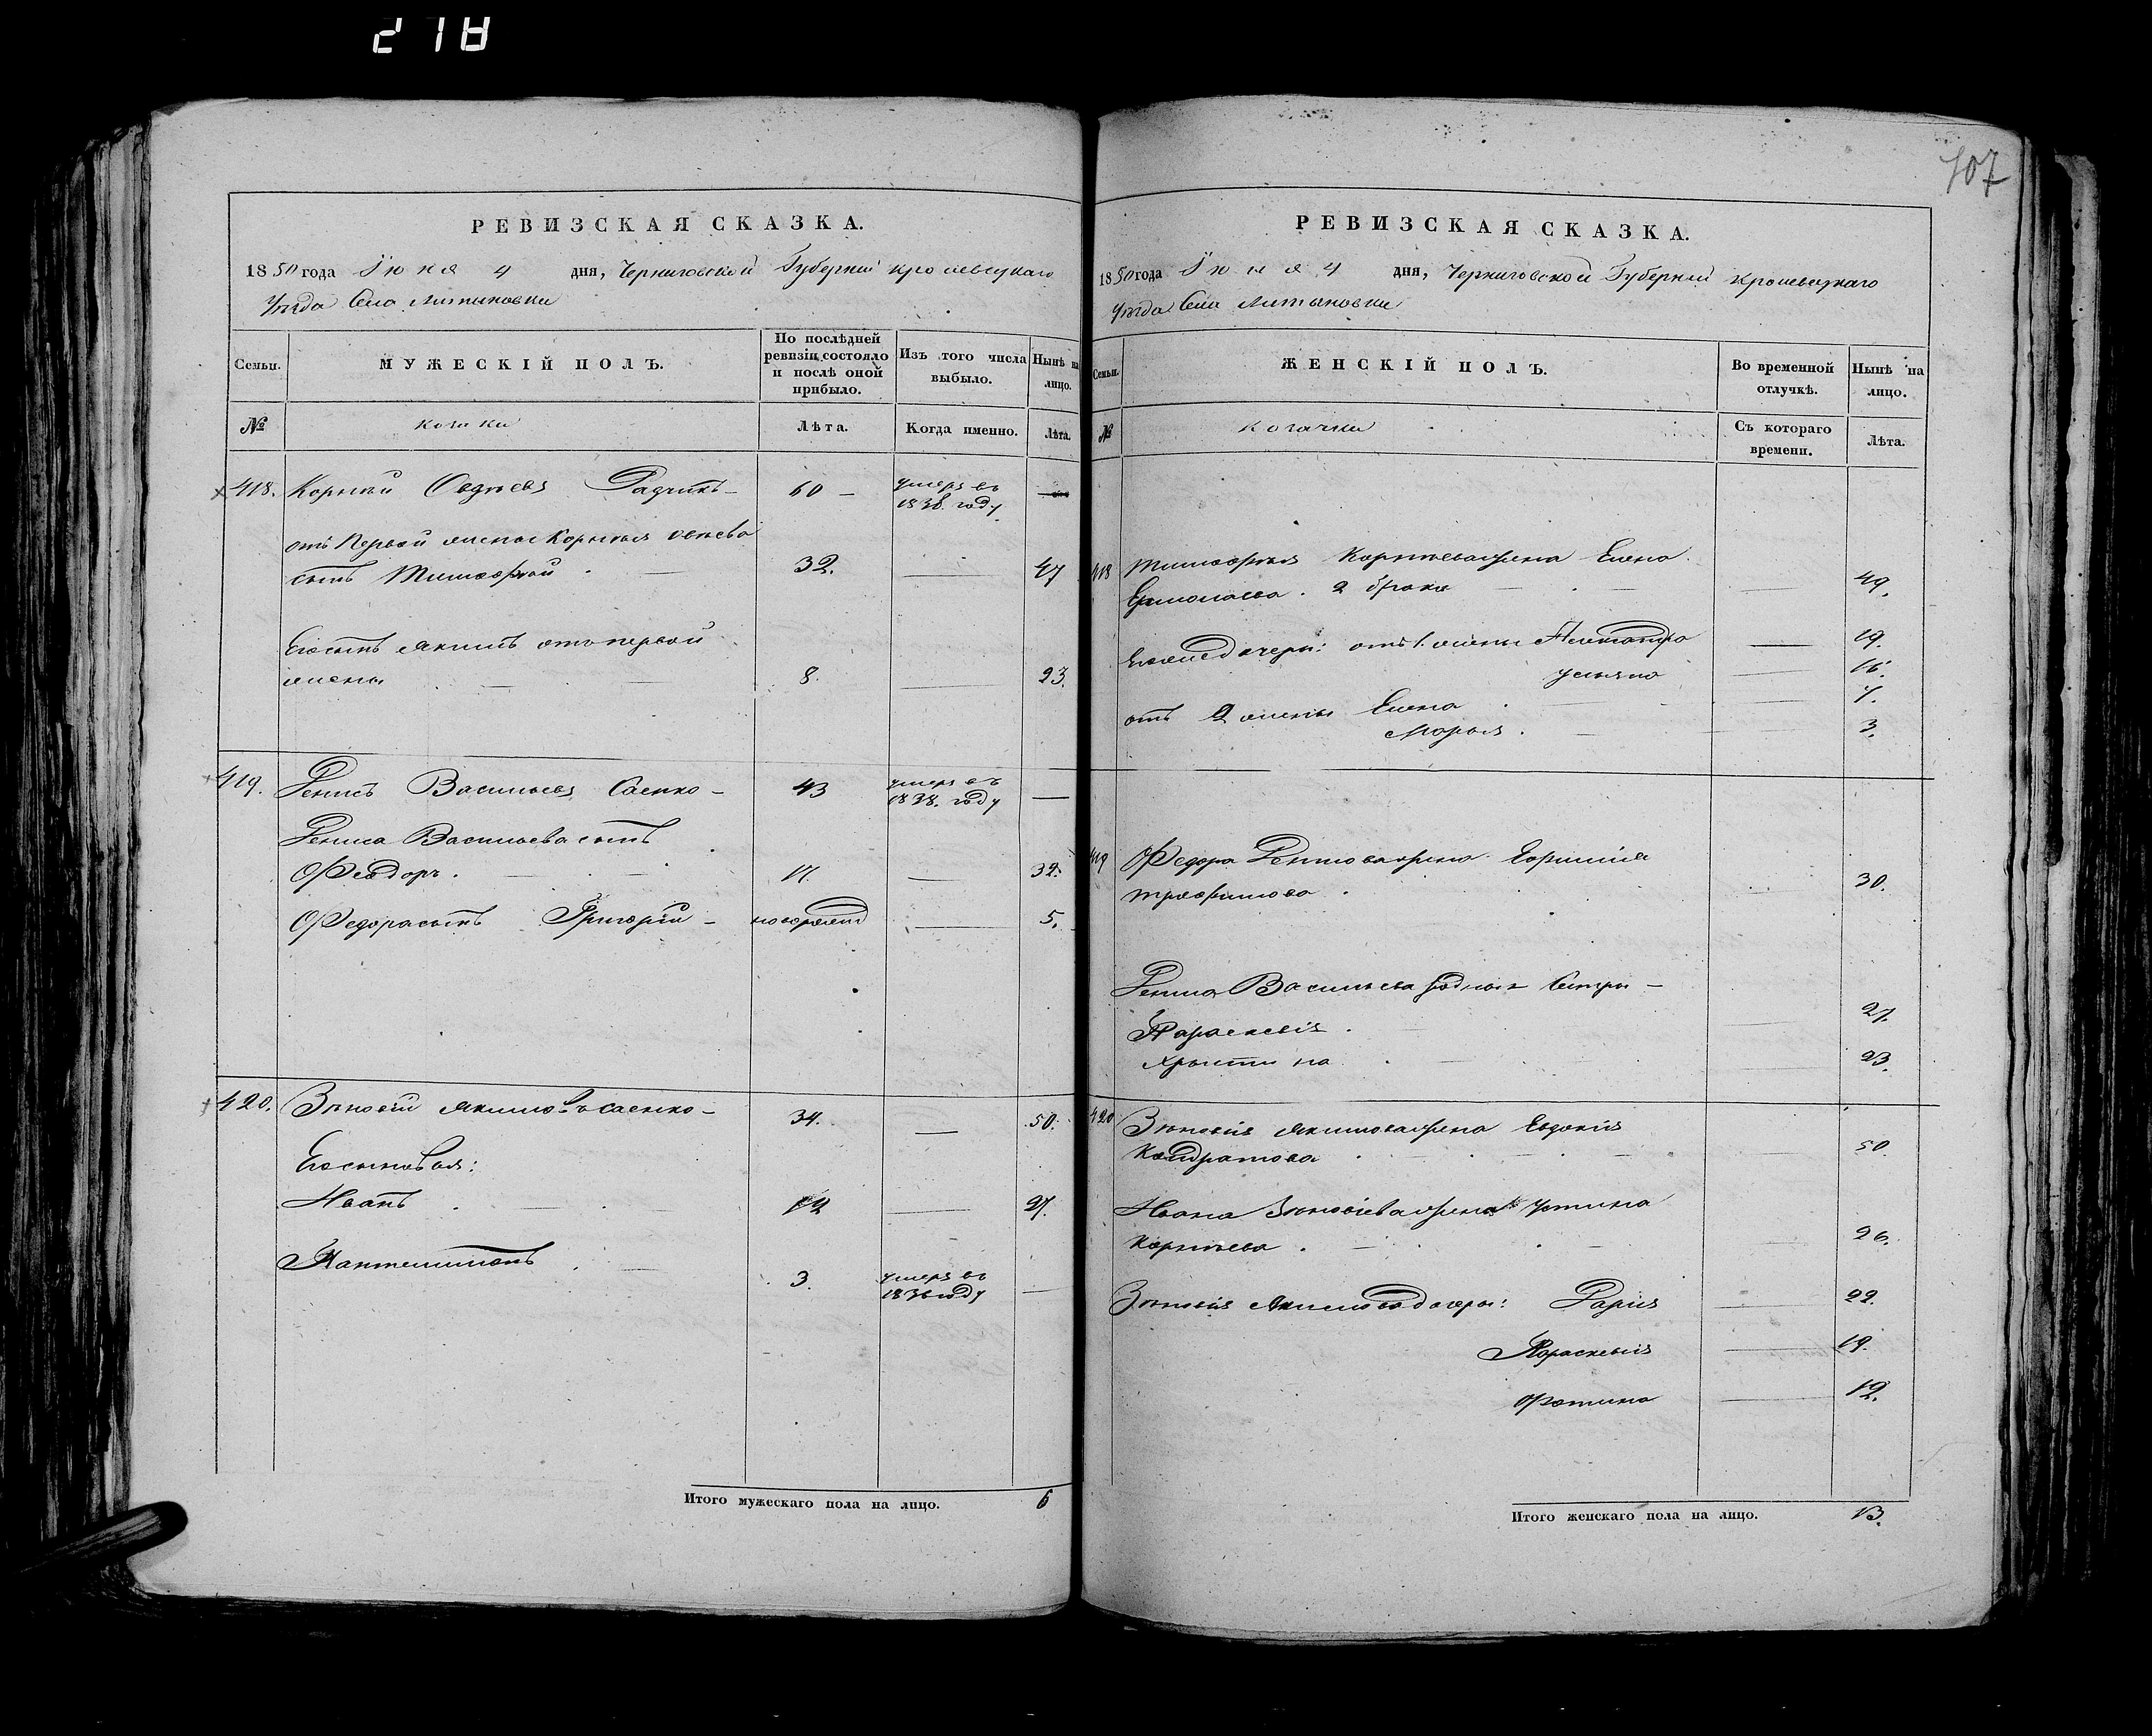 218
РЕВИЗСКАЯ СКАЗКА.
1850 года Іюня 4 дня, Черниговской Губерніи Кролевецкаго
Уѣзда Села Литвиновки
Семьи.
МУЖЕСКІЙ ПОЛЪ.
По послѣдней ревизіи состояло и послѣ оной прибыло.
Изъ того числа выбыло.
Нынѣ на лицо.
№
козаки
Лѣта.
Когда именно.
Лѣта.
418. Корнѣй Овдѣевъ 60 умеръ въ
1838. году
отъ Первой жены Корнѣя
сынъ Тимофѣй 32. 47
Егосынъ Якимъ отъ первой
жены 8. 23.
419. Денисъ Васильевъ Саенко 43 умеръ въ
1838. году
Дениса Васильева сынъ
Феодоръ. 17. 32.
Федора сынъ Григорій новорожд 5.
420. Зѣновій Якимовъ Саенко 34. 50.
Его сыновья:
Иванъ 12 27.
Пантелимонъ 3. умеръ въ
1836 году
Итого мужескаго пола на лицо. 6
107
РЕВИЗСКАЯ СКАЗКА.
1850 года Іюня 4 дня, Черниговской Губерніи Кролевецкаго
Уѣзда Села Литвиновки
Семьи.
ЖЕНСКІЙ ПОЛЪ.
Во временной отлучкѣ.
Нынѣ на лицо.
№
козачки
Съ котораго времени.
Лѣта.
418 Тимофѣя Корнѣева жена Елена
Ермолаева. 2 брака 49.
Егожедочери: отъ 1. жены Александра 19.
Ульяна 16.
отъ 2 жены Елена 7.
Марья. 3.
419 Федора Денисова жена Евфимія
Трофимова. 30.
Дениса Васильева родныя Сестры
Параскевія. 27.
Христина 23.
420 Зѣновія Якимова жена Евдокія
Кондратова 50
Ивана Зѣновіева жена Устина
Корнѣева. 26.
Зѣновія Якимова дочери: Дарія 22.
Параскевія 19.
Фотина 12.
Итого женскаго пола на лицо. 13.